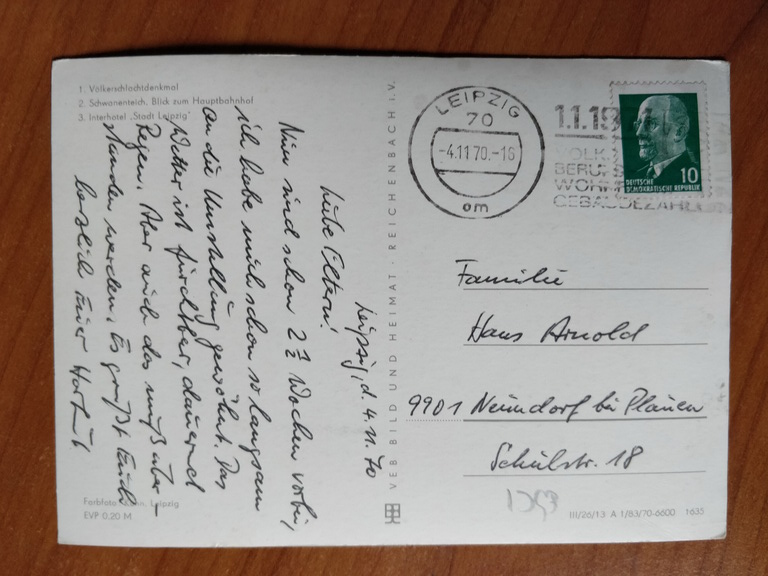 1. Völkerschlachtdenkmal
2. Schwanenteich. Blick zum Hauptbahnhof
3. Interhotel „Stadt Leipzig"
Leipzig, d. 4. 11. 70
Liebe Eltern!
Nun sind schon 2½ Wochen vorbei,
ich habe mich schon so langsam
an die Umstellung gewöhnt. Das
Wetter ist furchtbar, dauernd
Regen. Aber auch das muß über-
standen werden. Es grüßt Euch
herzlich Euer
Farbfoto Leipzig
EVP 0,20 M
VEB BILD UND HEIMAT · REICHENBACH I. V.
LEIPZIG
70
-4.11.70.-16
om
1.1.19
VOLK
BERUFS
WOHN
GEBÄUDEZÄHL
10
DEUTSCHE
DEMOKRATISCHE REPUBLIK
Familie
Hans Arnold
9901 Neundorf bei Plauen
Schulstr. 18
III/26/13 A 1/83/70-6600 1635